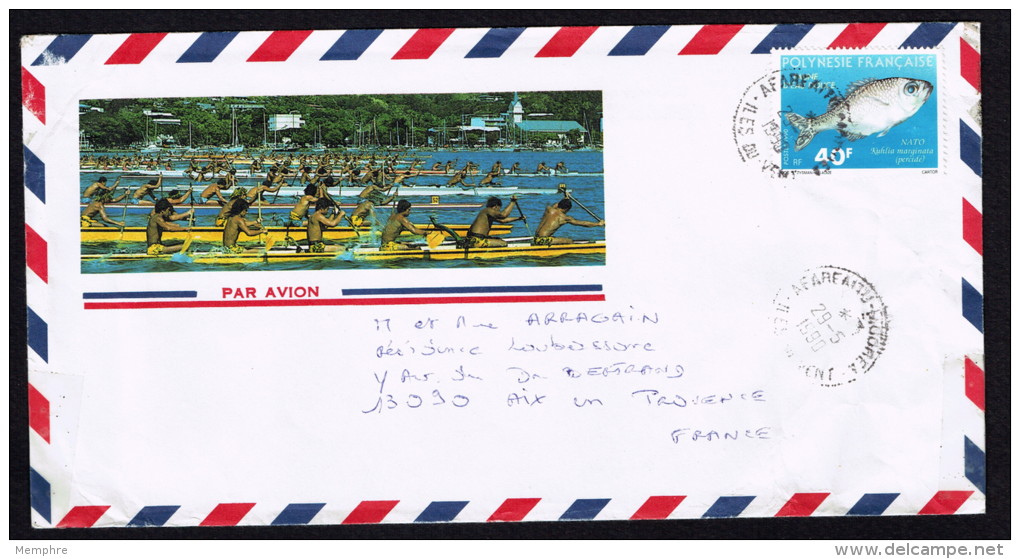 POLYNESIE FRANÇAISE
NATO
Kuhlia marginata
(percide)
RF 40F
CARTOR
AFAREAITU
1990
PAR AVION
AFAREAITU-MOOREA
29-5
1990
M et Mme ARRAGAIN
Résidence
Av. du Dr BERTRAND
13090 AIX en PROVENCE
FRANCE
Memphre
www.delcampe.net